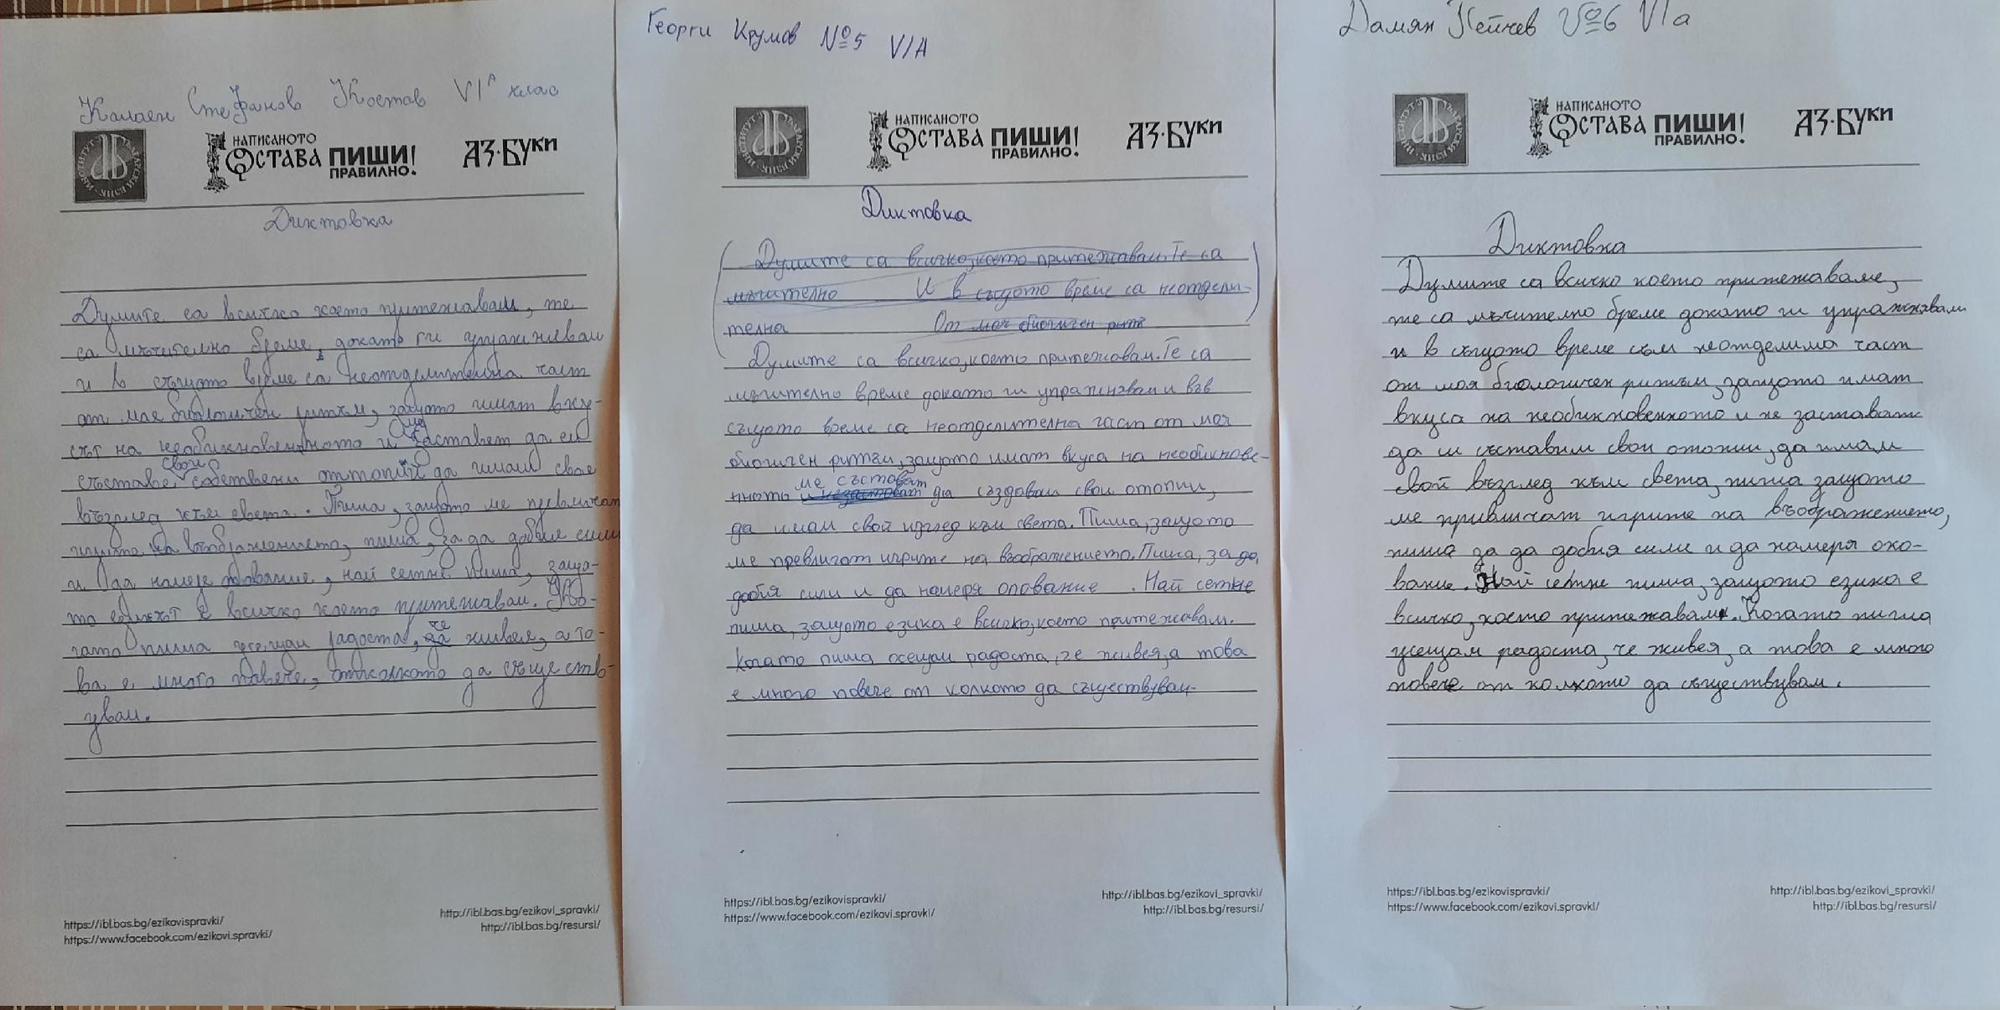 Калоен Стефанов Костов VIᴬ клас
НАПИСАНОТО
ОСТАВА ПИШИ!
ПРАВИЛНО!
АЗ·БУКИ
Диктовка
Думите са всичко което притежавам, те
са мъчително бреме, докато ги упражнявам
и в същото време са неотделителна част
от моя биологичен ритъм, защото имат вку-
сът на необикновенното и ме заставят да си
съставе свои собствени оттопий да имам свое
възглед към света. Пиша, защото ме превличат
игрите на въображението, пиша, за да добие сили
и да намеря
, най сетне пиша, защо-
то езикът е всичко което притежавам. Ко-
гато пиша усещам радоста, че живея, а то-
ва е много повече, отколкото да съществ-
увам.
https://ibl.bas.bg/ezikovispravki/
https://www.facebook.com/ezikovi.spravki/
http://ibl.bas.bg/ezikovi_spravki/
http://ibl.bas.bg/resursi/
Георги Крумов №5 VIА
НАПИСАНОТО
ОСТАВА ПИШИ!
ПРАВИЛНО!
АЗ·БУКИ
Диктовка
Думите са всичко, което притежавам. Те са
мъчително И в същото време са неотдели-
телна От моя биологичен ритъ
Думите са всичко, което притежавам. Те са
мъчително време докато ги упражнявам и във
същото време са неотделителна част от моя
биогичен ритъм, защото имат вкуса на необикнове-
нното ме съставят да създавам свои отопии,
да имам свой изглед към света. Пиша, защото
ме превличат игрите на въображението. Пиша, за да
добия сили и да намеря опование . Най сетне
пиша, защото езика е всичко, което притежавам.
Когато пиша осещам радоста, че живея, а това
е много повече от колкото да съществувам.
https://ibl.bas.bg/ezikovispravki/
https://www.facebook.com/ezikovi.spravki/
http://ibl.bas.bg/ezikovi_spravki/
http://ibl.bas.bg/resursi/
Дамян Пейчев №6 VIа
НАПИСАНОТО
ОСТАВА ПИШИ!
ПРАВИЛНО!
АЗ·БУКИ
Диктовка
Думите са всичко което притежаваме,
те са мъчително бреме докато ги упражнявам
и в същото време съм неотделима част
от моя биологичен ритъм, защото имат
вкуса на необикновенното и не заставят
да си съставим свои отопии, да имам
свой възглед към света, пиша защото
ме привличат игрите на въображението,
пиша за да добия сили и да намеря охо-
вание. Най сетне пиша, защото езика е
всичко, което притежавам. Когато пиша
усещам радоста, че живея, а това е много
повече от колкото да съществувам.
https://ibl.bas.bg/ezikovispravki/
https://www.facebook.com/ezikovi.spravki/
http://ibl.bas.bg/ezikovi_spravki/
http://ibl.bas.bg/resursi/